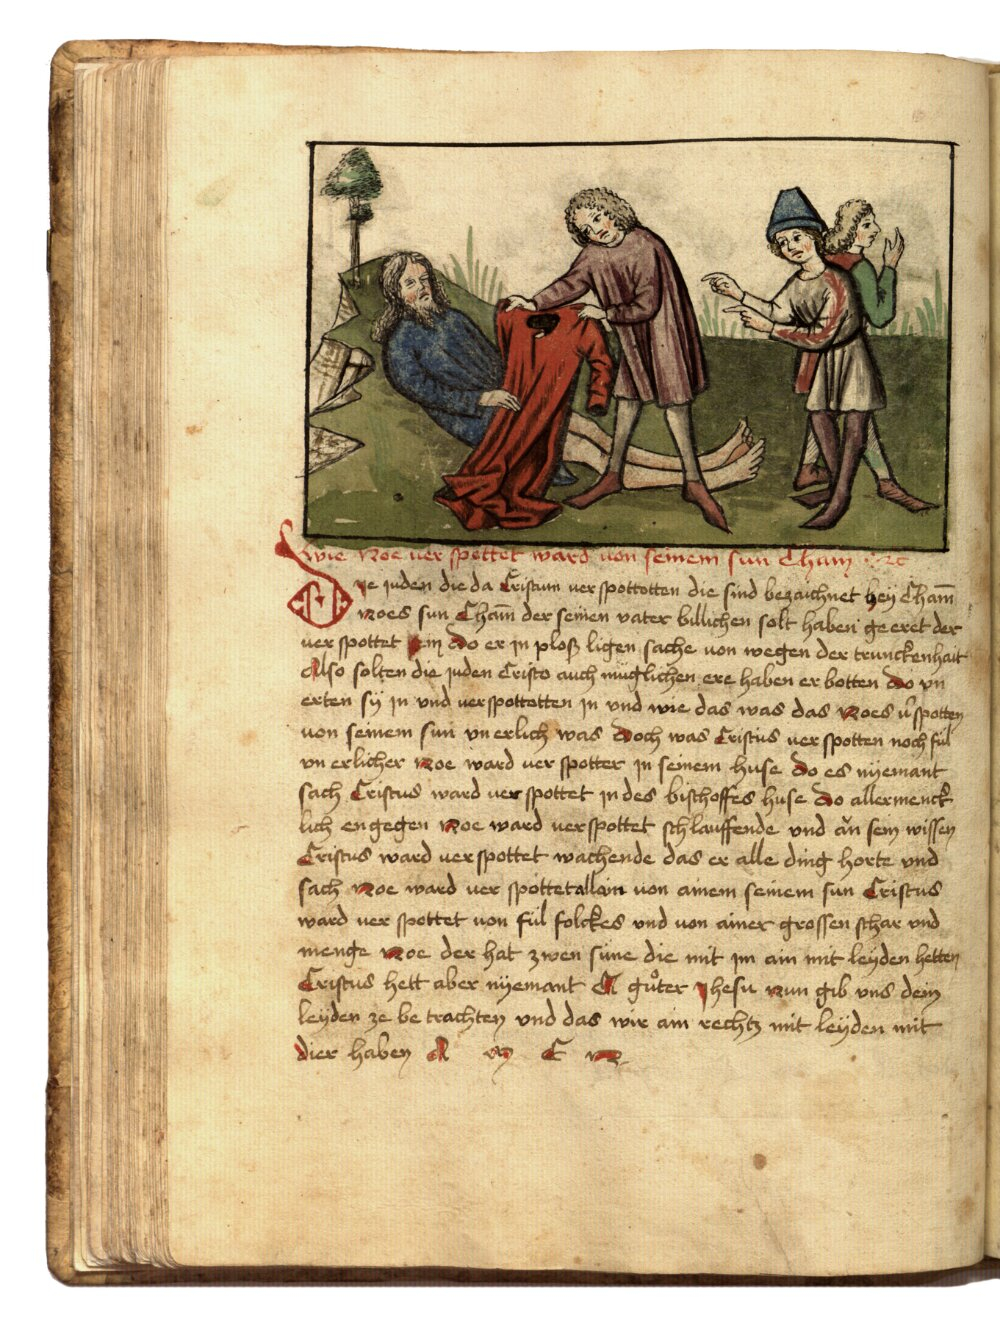 Wie Noe verspottet ward von seinem sun Cham ꝛc
Die juden die da Cristum verspottotten die sind bezaichnet bey Cham̄
Noes sun Cham̄ der seinen vater billichen solt haben geeret der
verspottet jm do er jn ploß ligen sache von wegen der trunckenhait
Also solten die juden Cristo auch müglichen ere haben erbotten do vn
erten sÿ jn vnd verspottotten jn vnd wie das was das Noes v̉spotten
von seinem sun vnerlich was doch was Cristus verspotten noch fúl
vnerlicher Noe ward verspotter in seinem huse do es nÿemant
sach Cristus ward verspottet in des bischoffes huse do allermenck
lich engegen Noe ward verspottet schlauffende vnd ǎn sein wissen
Cristus ward verspottet wachende das er alle ding horte vnd
sach Noe ward verspottet allain von ainem seinem sun Cristus
ward verspottet von fúl folckes vnd von ainer grossen schar vnd
menge Noe der hat zwen süne die mit jm ain mit leÿden hetten
Cristus hett aber nÿemant A gůter Jhesu Nun gib vns dein
leÿden ze betrachten vnd das wir ain rechtz mit leÿden mit
dier haben A M E N